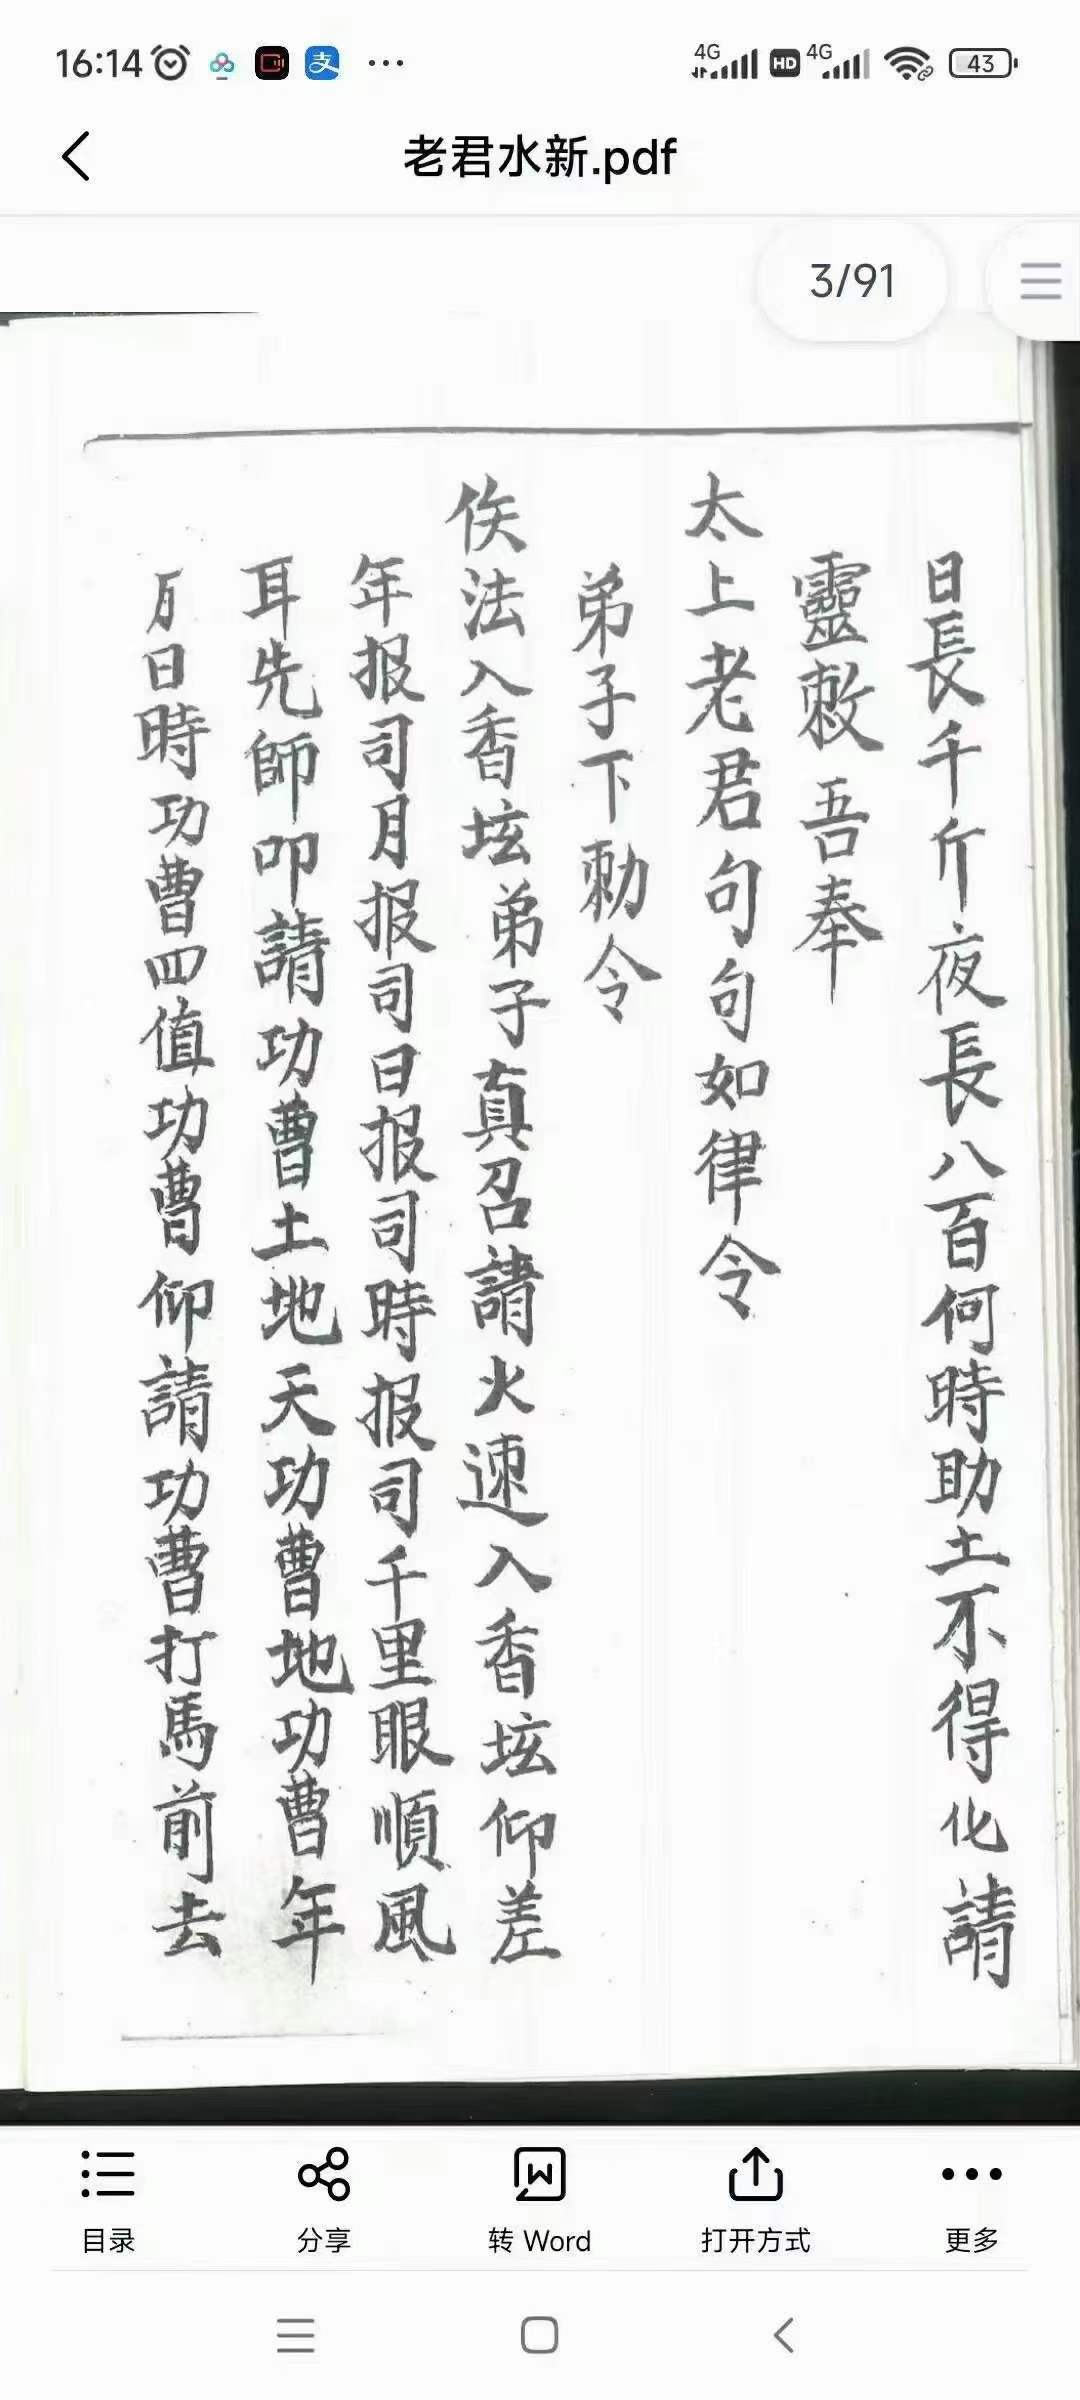 16:14
4G HD 4G 43
老君水新.pdf
3/91
日長千斤夜長八百何時助土不得化請
靈敕吾奉
太上老君句句如律令
弟子下勅令
俟法入香坛弟子真召請火速入香坛仰差
年报司月报司日报司時报司千里眼順風
耳先師叩請功曹土地天功曹地功曹年
月日時功曹四值功曹仰請功曹打馬前去
目录
分享
转 Word
打开方式
更多